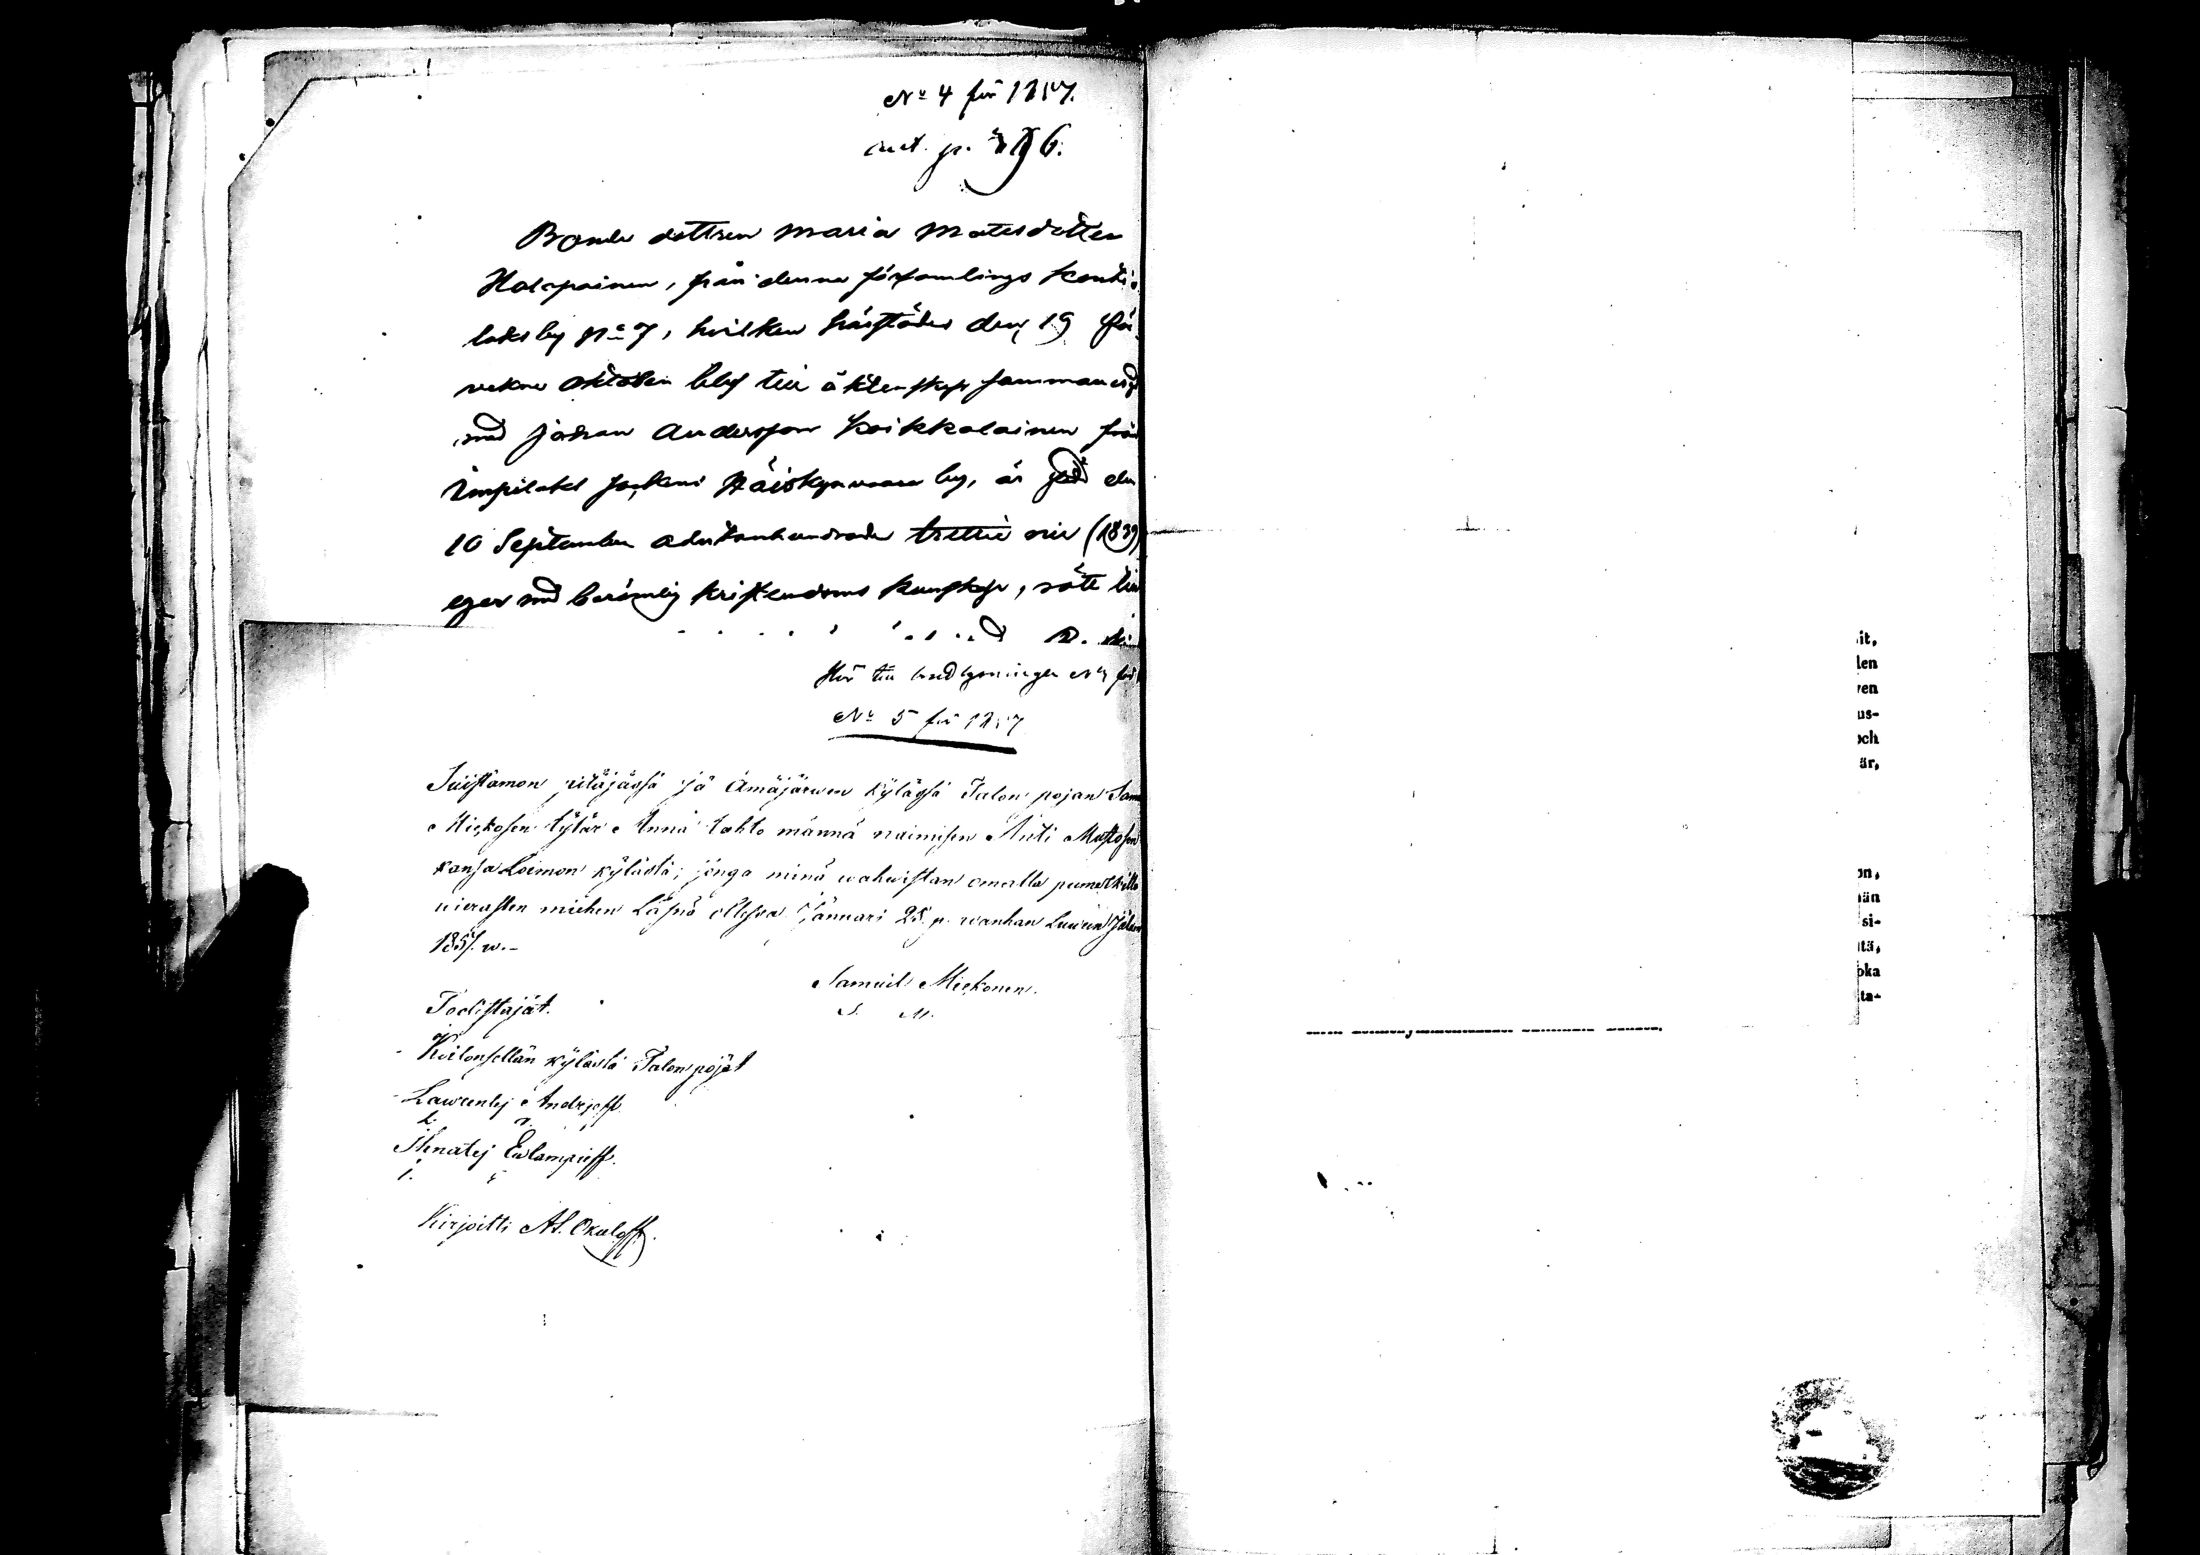 No 4 för 1857.
Bonde dottren Maria Matesdotter
Holopainen, från denna församlings Konti-
laks by No 7, hvilken härstädes den 19 sis-
oktober blef till äktenskap samman
med Johan Andersson Koikkalainen från
Impilaks sockens Häiskynvaara by, är född den
10 September adertonhundrade trettie nie (1839)
eger med berömlig kristendoms kunskap, rätt till
Hör till No
No 5 för 1857
Suistamon pitäjässä ja Ämäjärwen kylässä Talon pojan Sam
Mickosen tytär Anna tahto männä naimisen Anti Mustosen
kansa Loimon kylästä; jonga minä wahwistan omalla puumerkillä
wierasten miehen läsnä ollessa Januari 25 p. wanhan Luwun jälen
1857. w.-
Samuil Mickonen.
S. M.
Todistajat.
Koitonsellän kylästä Talon pojat
Lawrentej Andrjeff.
L. A.
Ihnatej Ewlampieff.
I. E
Kirjoitti Al. Okuloff.
it,
len
ven
us-
och
är,
on,
än
si-
tä,
oka
ta-